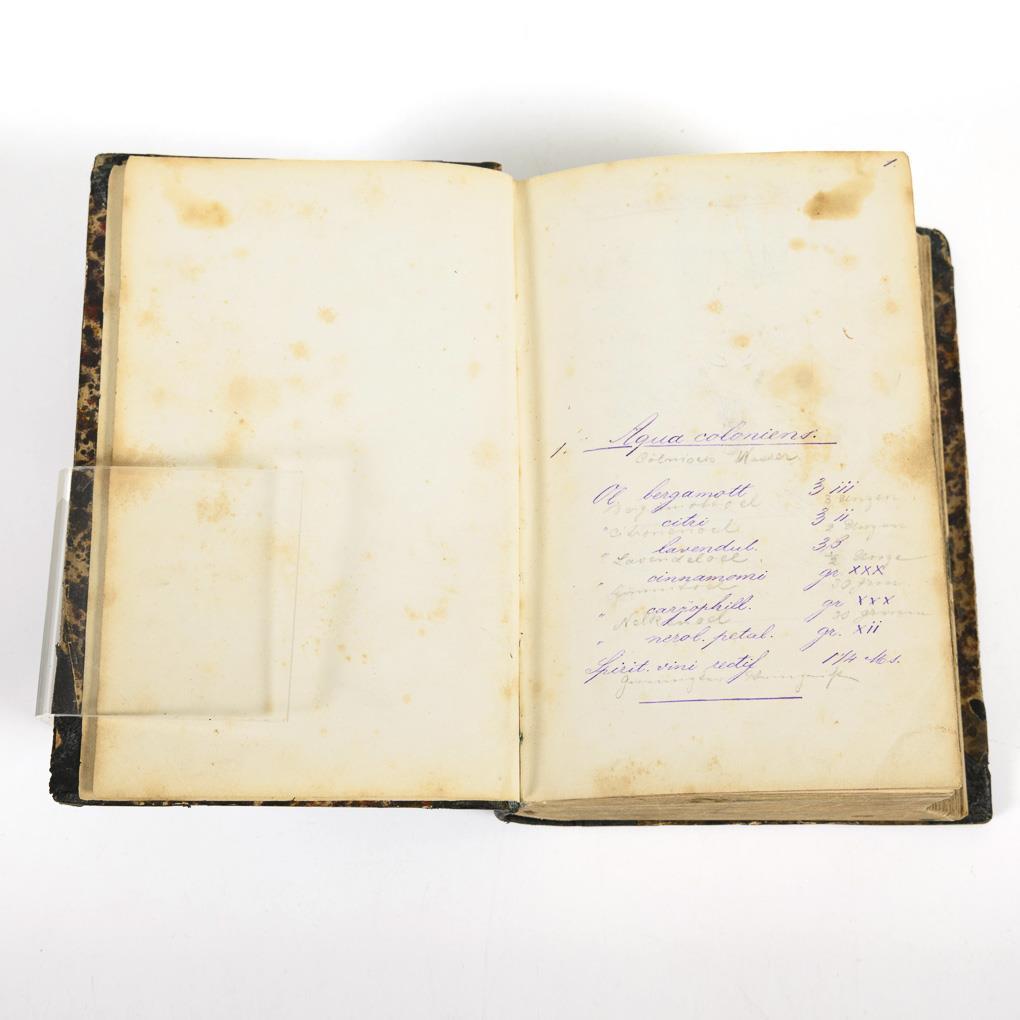 1.
1. Aqua coloniens.
Cölnisches Wasser.
Ol bergamott ʒ iii
Bergamottoel 3 Unzen
" citri ʒ ii
Citronenoel 2 Unzen
" lavendul. ʒ ß
Lavendeloel. ½ Unze
" cinnamomi gr. xxx
30 gran
" carÿophill. gr xxx
Nelkenoel 30 granen
" nerol. petal. gr. xii
Spirit. vini rectif 1¼ Ms.